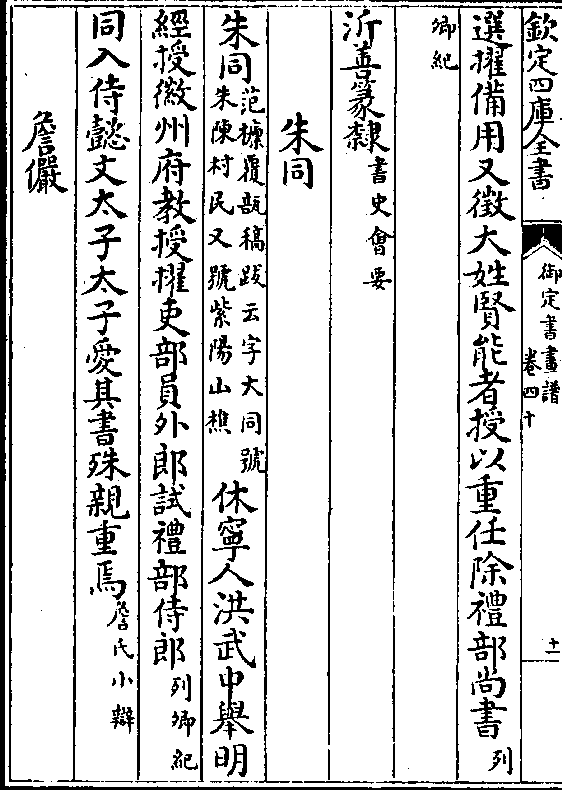 欽定四庫全書
御定書畫譜
卷四十
十一
選擢備用又徵大姓賢能者授以重任除禮部尚書列
卿紀
沂善篆隸書史會要
朱同
朱同范檺覆瓿稿跋云字大同號
朱陳村民又號紫陽山樵
休寧人洪武中舉明
經授徽州府教授擢吏部員外郎試禮部侍郎列卿紀
同入侍懿文太子太子愛其書殊親重焉詹氏小辯
詹儼